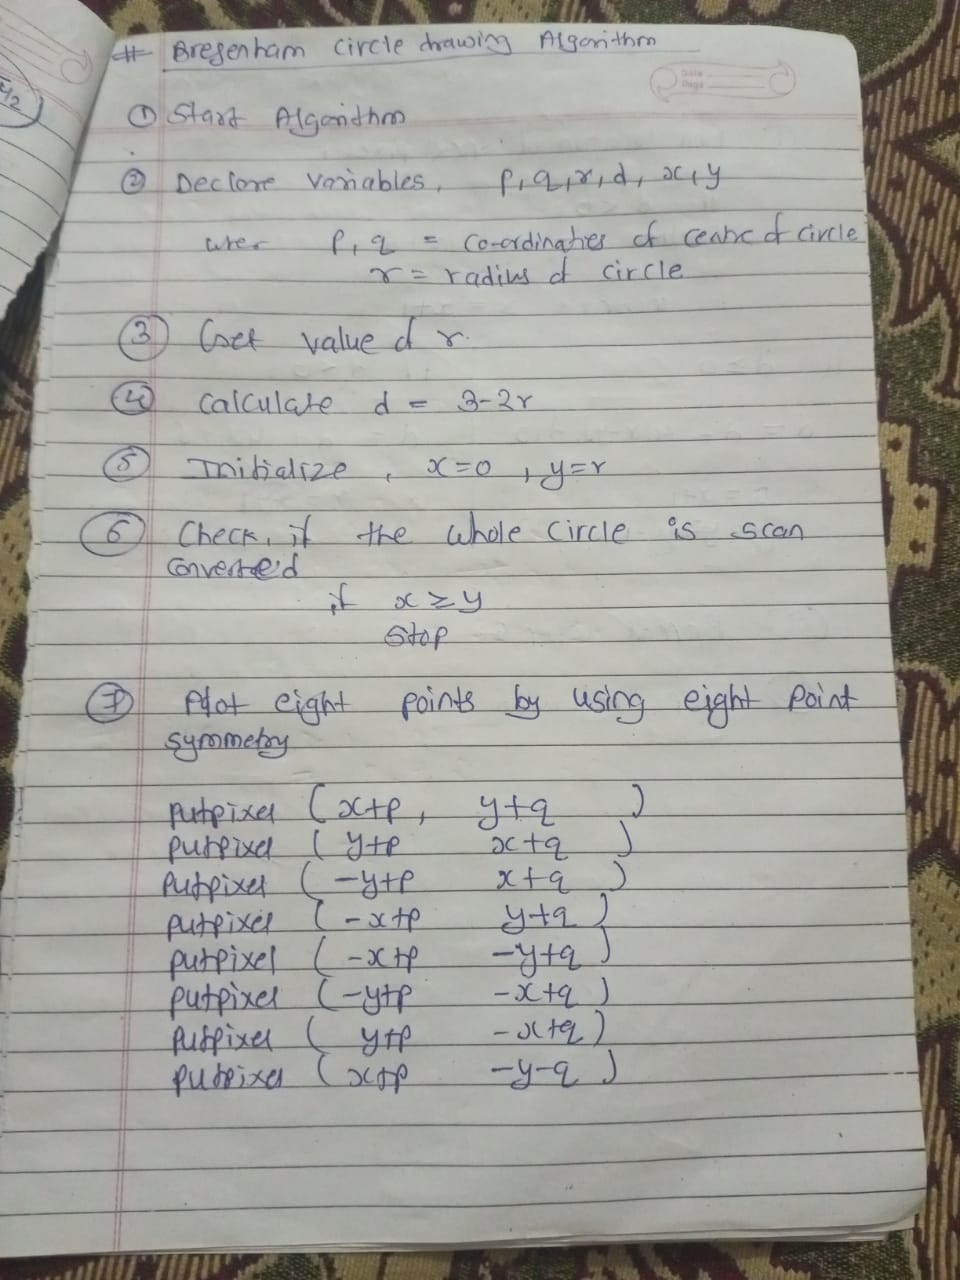 # Bresenham Circle drawing Algorithm
Date
Page
① Start Algorithm
② Declare variables, p,q,r,d, x,y
wher p,q = co-ordinaties of centre of circle
r = radius of circle
③ Get value of r.
④ Calculate d = 3-2r
⑤ Initialize, x=0, y=r
⑥ Check, if the whole circle is scan
converted
if x ≥ y
Stop
⑦ Plot eight points by using eight point
symmetry
putpixel (x+p, y+q )
putpixel ( y+p x+q )
putpixel ( -y+p x+q )
putpixel ( -x+p y+q )
putpixel ( -x+p -y+q )
putpixel ( -y+p -x+q )
putpixel ( y+p -x+q )
putpixel ( x+p -y-q )